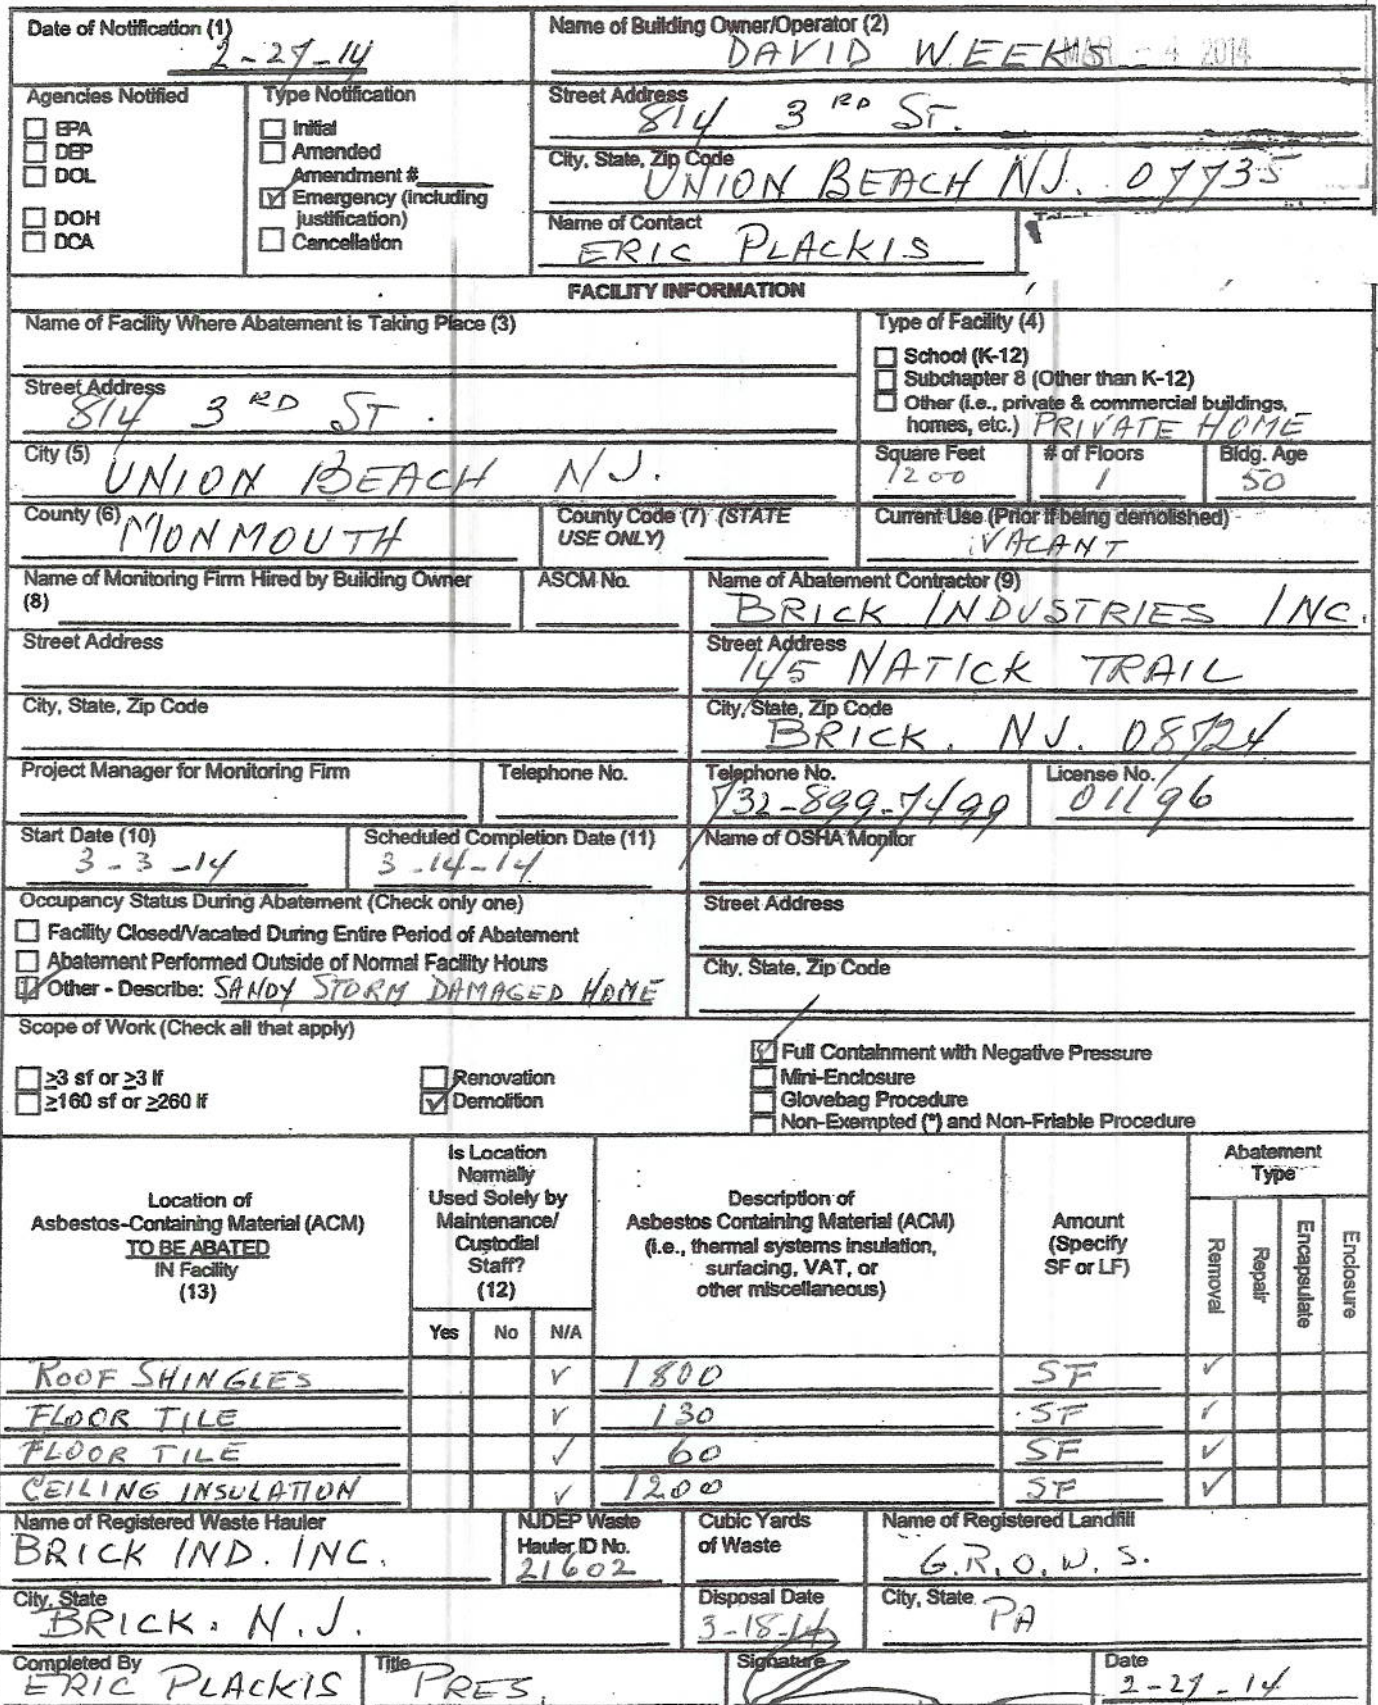 Date of Notification (1)
2-27-14
Name of Building Owner/Operator (2)
DAVID WEEKS
MAR - 4 2014
Agencies Notified
EPA
DEP
DOL
DOH
DCA
Type Notification
Initial
Amended
Amendment #
Emergency (including
justification)
Cancellation
Street Address
814 3RD ST.
City, State, Zip Code
UNION BEACH NJ. 07735
Name of Contact
ERIC PLACKIS
FACILITY INFORMATION
Name of Facility Where Abatement is Taking Place (3)
Street Address
814 3RD ST.
Type of Facility (4)
School (K-12)
Subchapter 8 (Other than K-12)
Other (i.e., private & commercial buildings,
homes, etc.) PRIVATE HOME
City (5)
UNION BEACH NJ.
Square Feet
1200
# of Floors
1
Bldg. Age
50
County (6)
MONMOUTH
County Code (7) (STATE
USE ONLY)
Current Use (Prior if being demolished)
VACANT
Name of Monitoring Firm Hired by Building Owner
(8)
ASCM No.
Name of Abatement Contractor (9)
BRICK INDUSTRIES INC.
Street Address
Street Address
145 NATICK TRAIL
City, State, Zip Code
City, State, Zip Code
BRICK. NJ. 08724
Project Manager for Monitoring Firm
Telephone No.
Telephone No.
732-899-7499
License No.
01196
Start Date (10)
3-3-14
Scheduled Completion Date (11)
3-14-14
Name of OSHA Monitor
Occupancy Status During Abatement (Check only one)
Facility Closed/Vacated During Entire Period of Abatement
Abatement Performed Outside of Normal Facility Hours
Other - Describe: SANDY STORM DAMAGED HOME
Street Address
City, State, Zip Code
Scope of Work (Check all that apply)
≥3 sf or ≥3 lf
≥160 sf or ≥260 lf
Renovation
Demolition
Full Containment with Negative Pressure
Mini-Enclosure
Glovebag Procedure
Non-Exempted (*) and Non-Friable Procedure
Location of
Asbestos-Containing Material (ACM)
TO BE ABATED
IN Facility
(13)
Is Location
Normally
Used Solely by
Maintenance/
Custodial
Staff?
(12)
Yes No N/A
Description of
Asbestos Containing Material (ACM)
(i.e., thermal systems insulation,
surfacing, VAT, or
other miscellaneous)
Amount
(Specify
SF or LF)
Abatement
Type
Removal
Repair
Encapsulate
Enclosure
ROOF SHINGLES ✓ 1800 SF ✓
FLOOR TILE ✓ 130 SF ✓
FLOOR TILE ✓ 60 SF ✓
CEILING INSULATION ✓ 1200 SF ✓
Name of Registered Waste Hauler
BRICK IND. INC.
NJDEP Waste
Hauler ID No.
21602
Cubic Yards
of Waste
Name of Registered Landfill
G.R.O.W.S.
City, State
BRICK. N.J.
Disposal Date
3-18-14
City, State
PA
Completed By
ERIC PLACKIS
Title
PRES.
Signature
Date
2-27-14